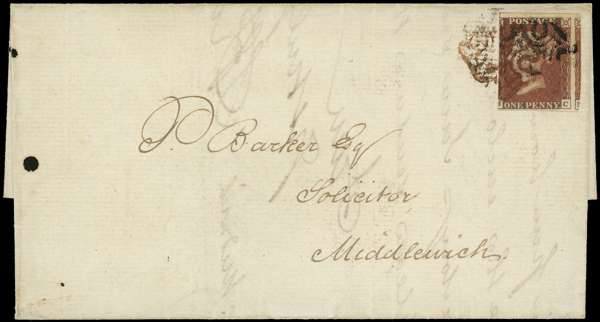 POSTAGE
ONE PENNY
P. Barker Esq
Solicitor
Middlewich